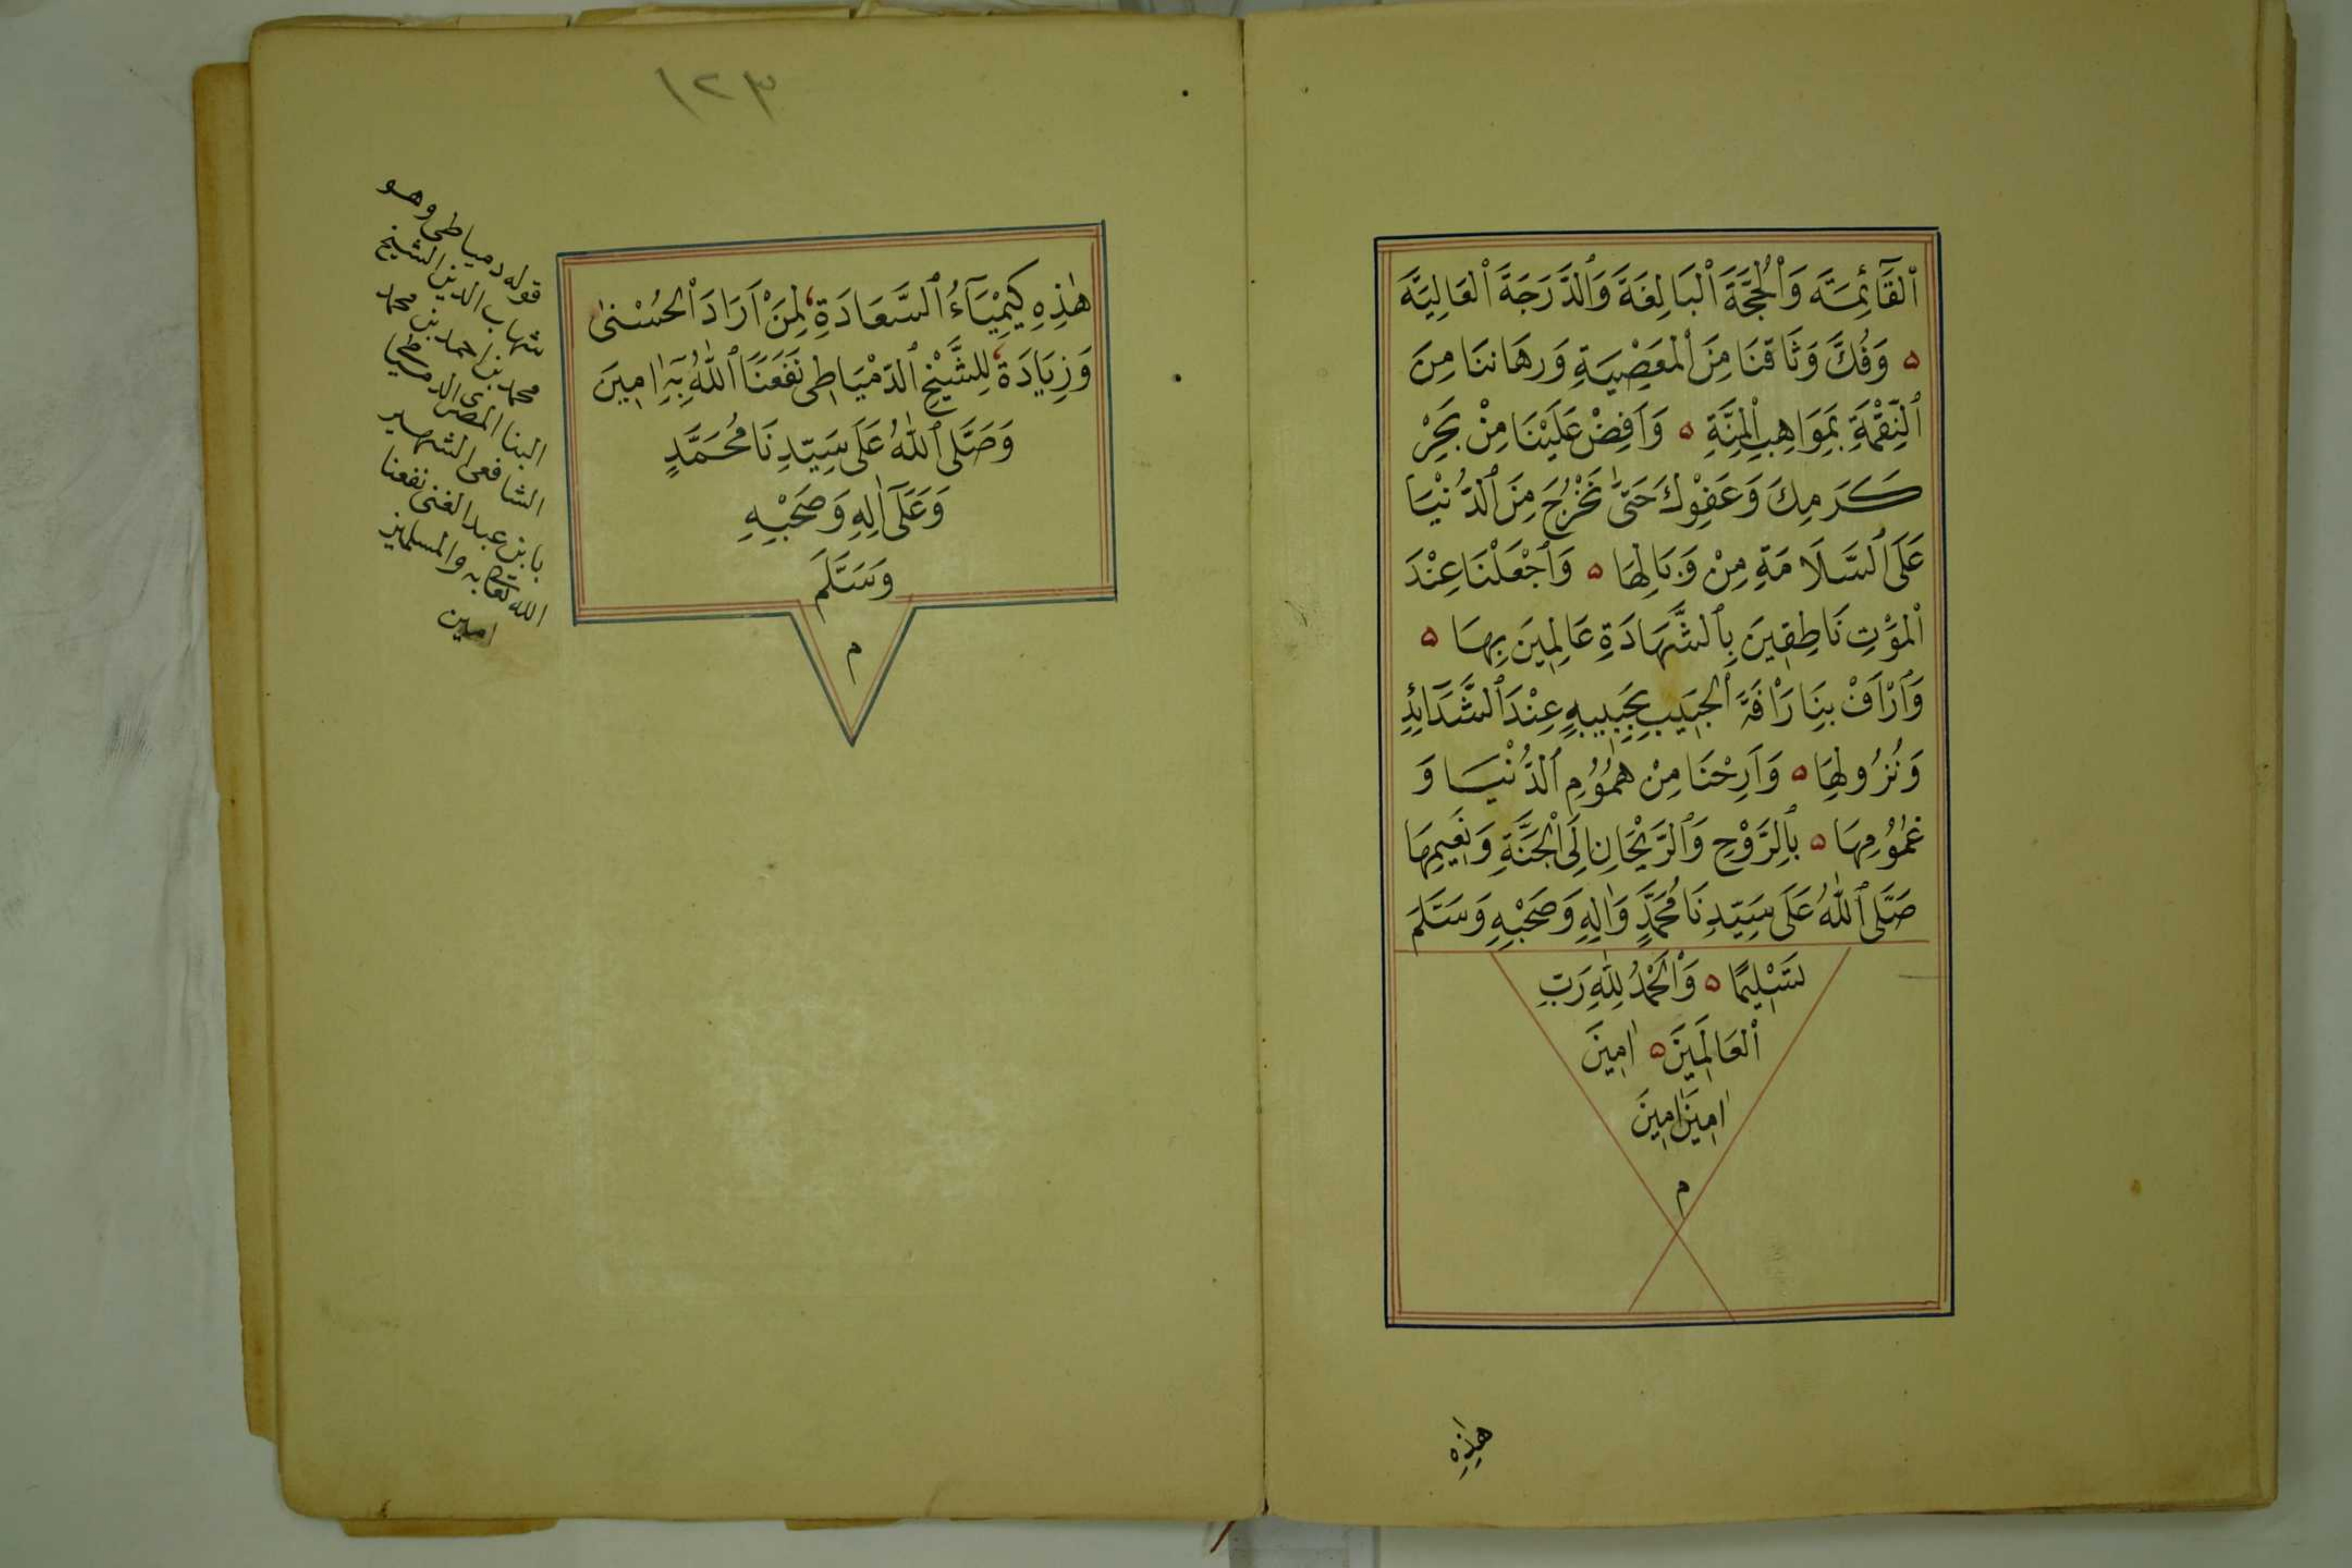 اَلْقَآئِمَةَ وَاْلحُجَّةَ اْلبَالِغَةَ وَالدَّرَجَةَ اْلعَالِيَةَ
ه وَفُكَّ وَثَاقَنَا مِنَ اْلمَعْصِيَةِ وَرِهَانَنَا مِنَ
النِّقْمَةِ بِمَوَاهِبِ اْلمِنَّةِ ه وَاَفِضْ عَلَيْنَا مِنْ بَحْرِ
كَرَمِكَ وَعَفْوِكَ حَتّٰى نَخْرُجَ مِنَ الدُّنْيَا
عَلَى السَّلَامَةِ مِنْ وَبَالِهَا ه وَاجْعَلْنَا عِنْدَ
اْلمَوْتِ نَاطِقِينَ بِالشَّهَادَةِ عَالِمِينَ بِهَا ه
وَارْاَفْ بِنَا رَاْفَةَ الْحَبِيبِ بِحَبِيبِهِ عِنْدَ الشَّدَآئِدِ
وَنُزُولِهَا ه وَاَرِحْنَا مِنْ هُمُوْمِ الدُّنْيَا وَ
غُمُوْمِهَا ه بِالرَّوْحِ وَالرَّيْحَانِ اِلَى الْجَنَّةِ وَنَعِيمِهَا
صَلَّى اللّٰهُ عَلَى سَيِّدِنَا مُحَمَّدٍ وَاٰلِهِ وَصَحْبِهِ وَسَلَّمَ
تَسْلِيمًا ه وَالْحَمْدُ لِلّٰهِ رَبِّ
اْلعَالَمِينَ ه اٰمِينَ
اٰمِينَ اٰمِينَ
م
هٰذِهِ
١٢٣
هٰذِهِ كِيمْيَآءُ السَّعَادَةِ لِمَنْ اَرَادَ الْحُسْنىٰ
وَزِيَادَةً لِلشَّيْخِ الدِّمْيَاطِى نَفَعَنَا اللّٰهُ بِهِ اٰمِينَ
وَصَلَّى اللّٰهُ عَلَى سَيِّدِنَا مُحَمَّدٍ
وَعَلَى اٰلِهِ وَصَحْبِهِ
وَسَلَّمَ
م
قوله دمياطى وهو
شهاب الدين الشيخ
محمد بن احمد بن محمد
البنا المصرى الدمياطى
الشافعى الشهير
بابن عبد الغنى نفعنا
الله تعالى به والمسلمين
امين